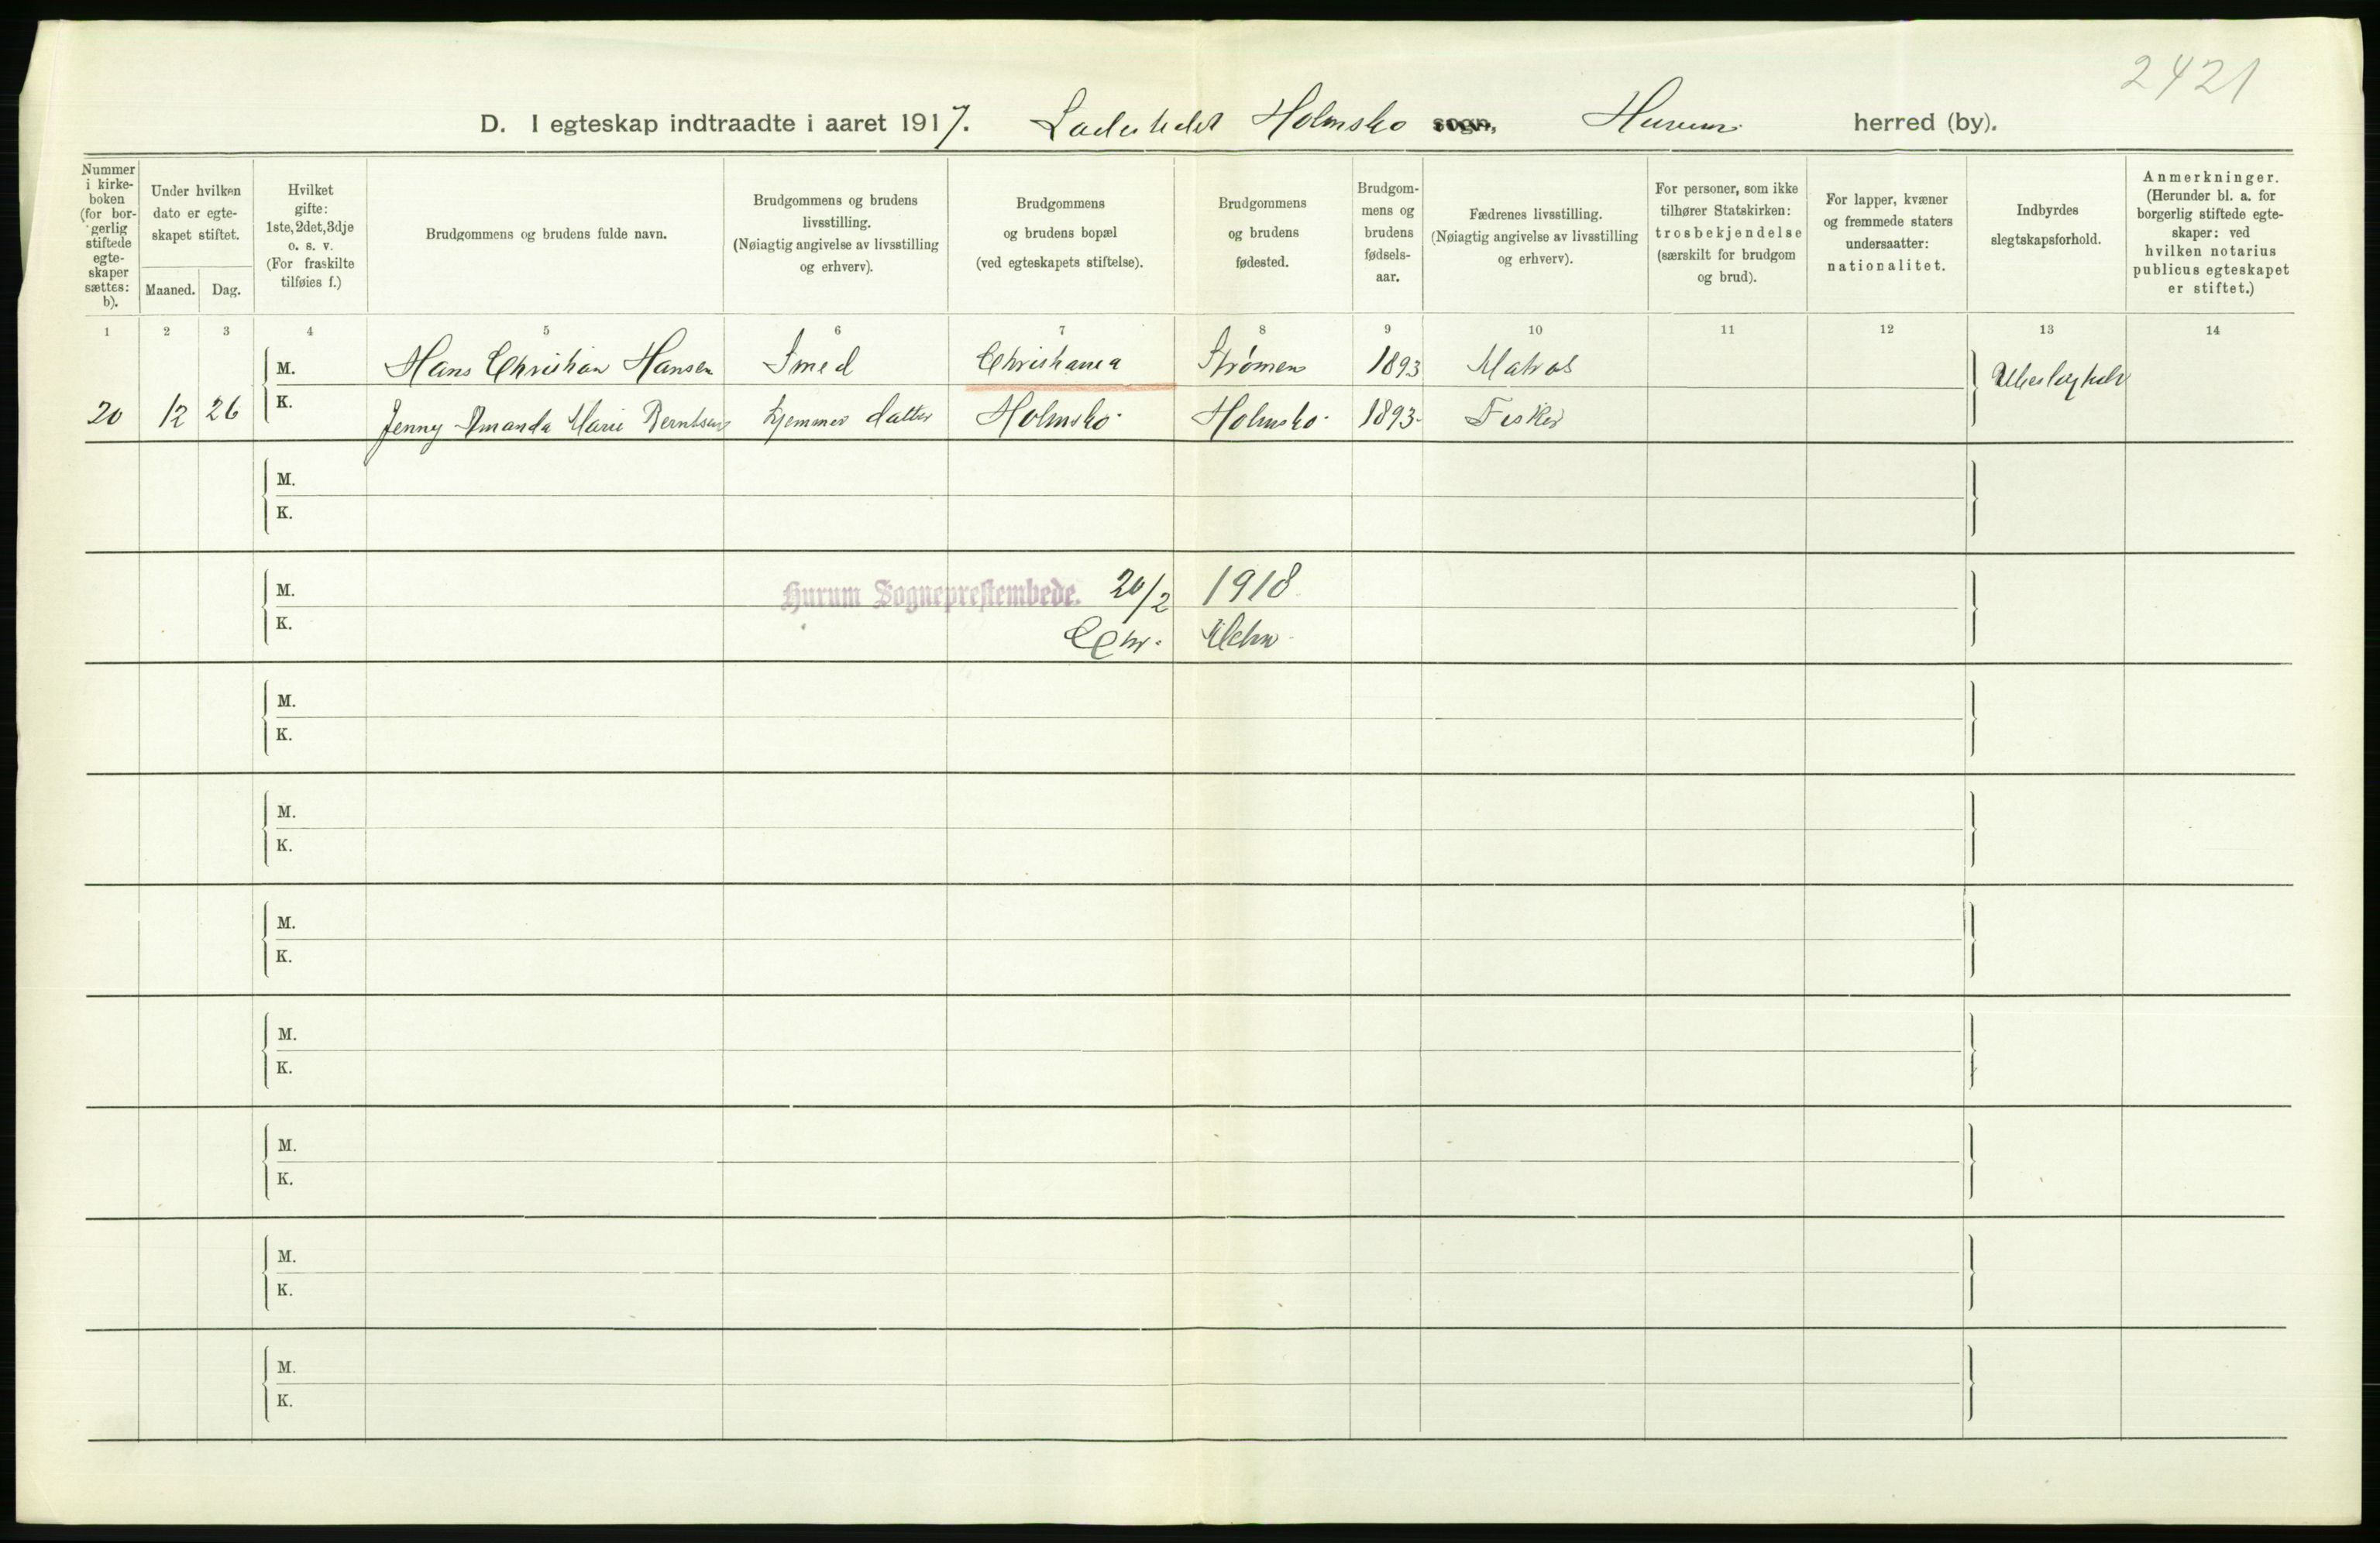 2421
D. I egteskap indtraadte i aaret 1917. Ladestedet Holmsbo sogn, Hurum herred (by).
Nummer i kirkeboken (for borgerlig stiftede egteskaper sættes: b).
Under hvilken dato er egteskapet stiftet.
Maaned. Dag.
Hvilket gifte: 1ste, 2det, 3dje o. s. v. (For fraskilte tilføies f.)
Brudgommens og brudens fulde navn.
Brudgommens og brudens livsstilling. (Nøiagtig angivelse av livsstilling og erhverv).
Brudgommens og brudens bopæl (ved egteskapets stiftelse).
Brudgommens og brudens fødested.
Brudgommens og brudens fødselsaar.
Fædrenes livsstilling. (Nøiagtig angivelse av livsstilling og erhverv).
For personer, som ikke tilhører Statskirken: trosbekjendelse (særskilt for brudgom og brud).
For lapper, kvæner og fremmede staters undersaatter: nationalitet.
Indbyrdes slegtskapsforhold.
Anmerkninger. (Herunder bl. a. for borgerlig stiftede egteskaper: ved hvilken notarius publicus egteskapet er stiftet.)
1 2 3 4 5 6 7 8 9 10 11 12 13 14
M. Hans Christian Hansen Smed Christiania Strømen 1893 Matros Ubeslegtede
20 12 26 K. Jenny Amanda Marie Berntsen hjemmev datter Holmsbo Holmsbo 1893 Fisker
M.
K.
M. Hurum Sogneprestembede. 20/2 1918
K. Chr.
M.
K.
M.
K.
M.
K.
M.
K.
M.
K.
M.
K.
M.
K.